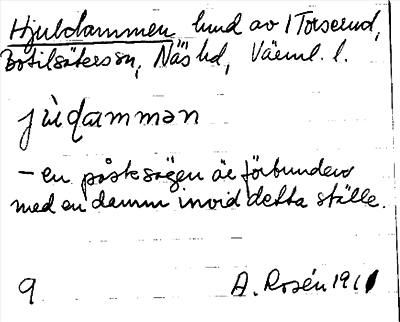 Hjuldammen hmd av 1 Torserud,
Botilsäters sn, Näs hd, Värml. l.
jùḍammən
– en påsksägen är förbunden
med en damm invid detta ställe.
9 A. Rosén 1911